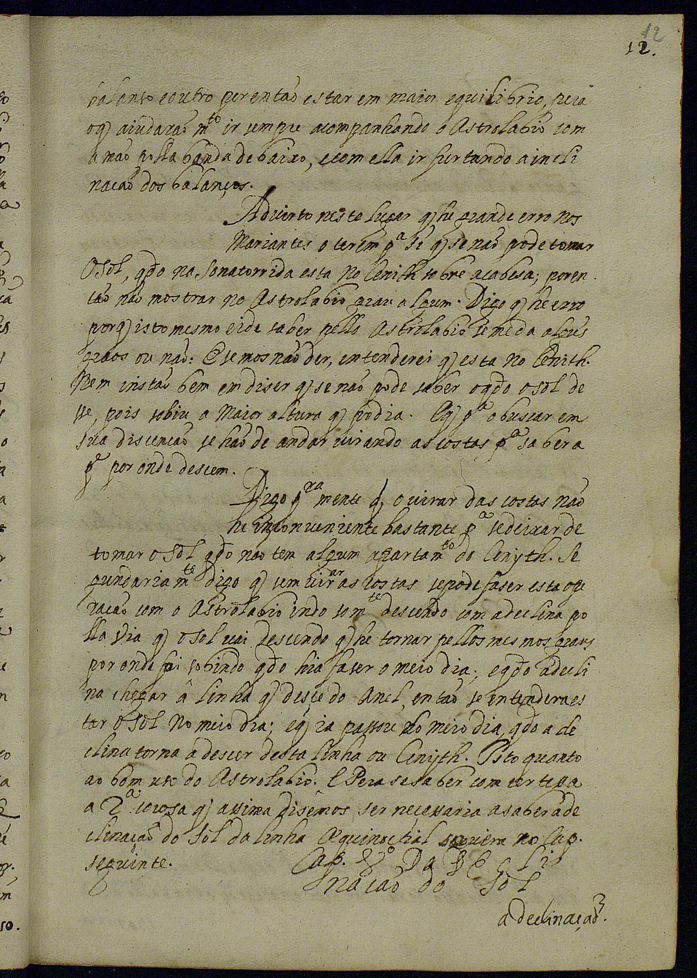 12
12.
balanso e outro por entaõ estar em maior equilibrio, pera
o q̃ aiudaraõ m.to ir sempre acompanhando o Astrolabio com
a maõ polla banda de baixo, e com ella ir furtando a incli
nacaõ dos balanços.
Aduirto neste lugar q̃ he grande erro nos
Mariantes o terem p.a se q̃ se naõ pode tomar
O Sol, qdo na Sona torrida esta no Cenith sobre a cabesa; por en
taõ naõ mostrar no Astrolabio grau algum. Digo q̃ he erro
porq̃ isto mesmo ei de saber pello Astrolabio se me da algũs
graos ou naõ: E se mos naõ der, entenderei q̃ esta no Cenith.
Nem instaõ bem em diser q̃ se naõ pode saber o qdo o Sol de
se, pois sobiu a Maior altura q̃ podia. E q̃ p.a o buscar em
sua discencaõ se haõ de andar uirando as costas p.a saber a
p.e por onde descem.
Digo p.ra mente q̃, o uirar das costas naõ
he inconueniente bastante p.a se deixar de
tomar o Sol qdo naõ tem algum apartam.to do Cenyth. Se
gundariam.te digo q̃ sem uirar as costas se pode faser esta ope
racaõ com o Astrolabio indo som.te descendo com a declina po
lla via q̃ o Sol uai descendo q̃ he tornar pellos mesmos graus
por onde foi sobindo qdo hia faser o meio dia; e qdo a decli
na chegar â linha q̃ desce do Anel, entaõ se entendera es
tar o Sol no meio dia; e q̃ ia passou do meio dia, qdo a de
clina torna a descer desta linha ou Cenyth. Isto quanto
ao bom uso do Astrolabio. E Pera se saber com certesa
a 2.a cousa q̃ assima disémos ser necessaria a saber a de
clinaçaõ do Sol da linha Æquinoctial seruira no Cap.
seguinte.
Cap. 2.o Da Decli
nacaõ do Sol
a declinaçaõ.